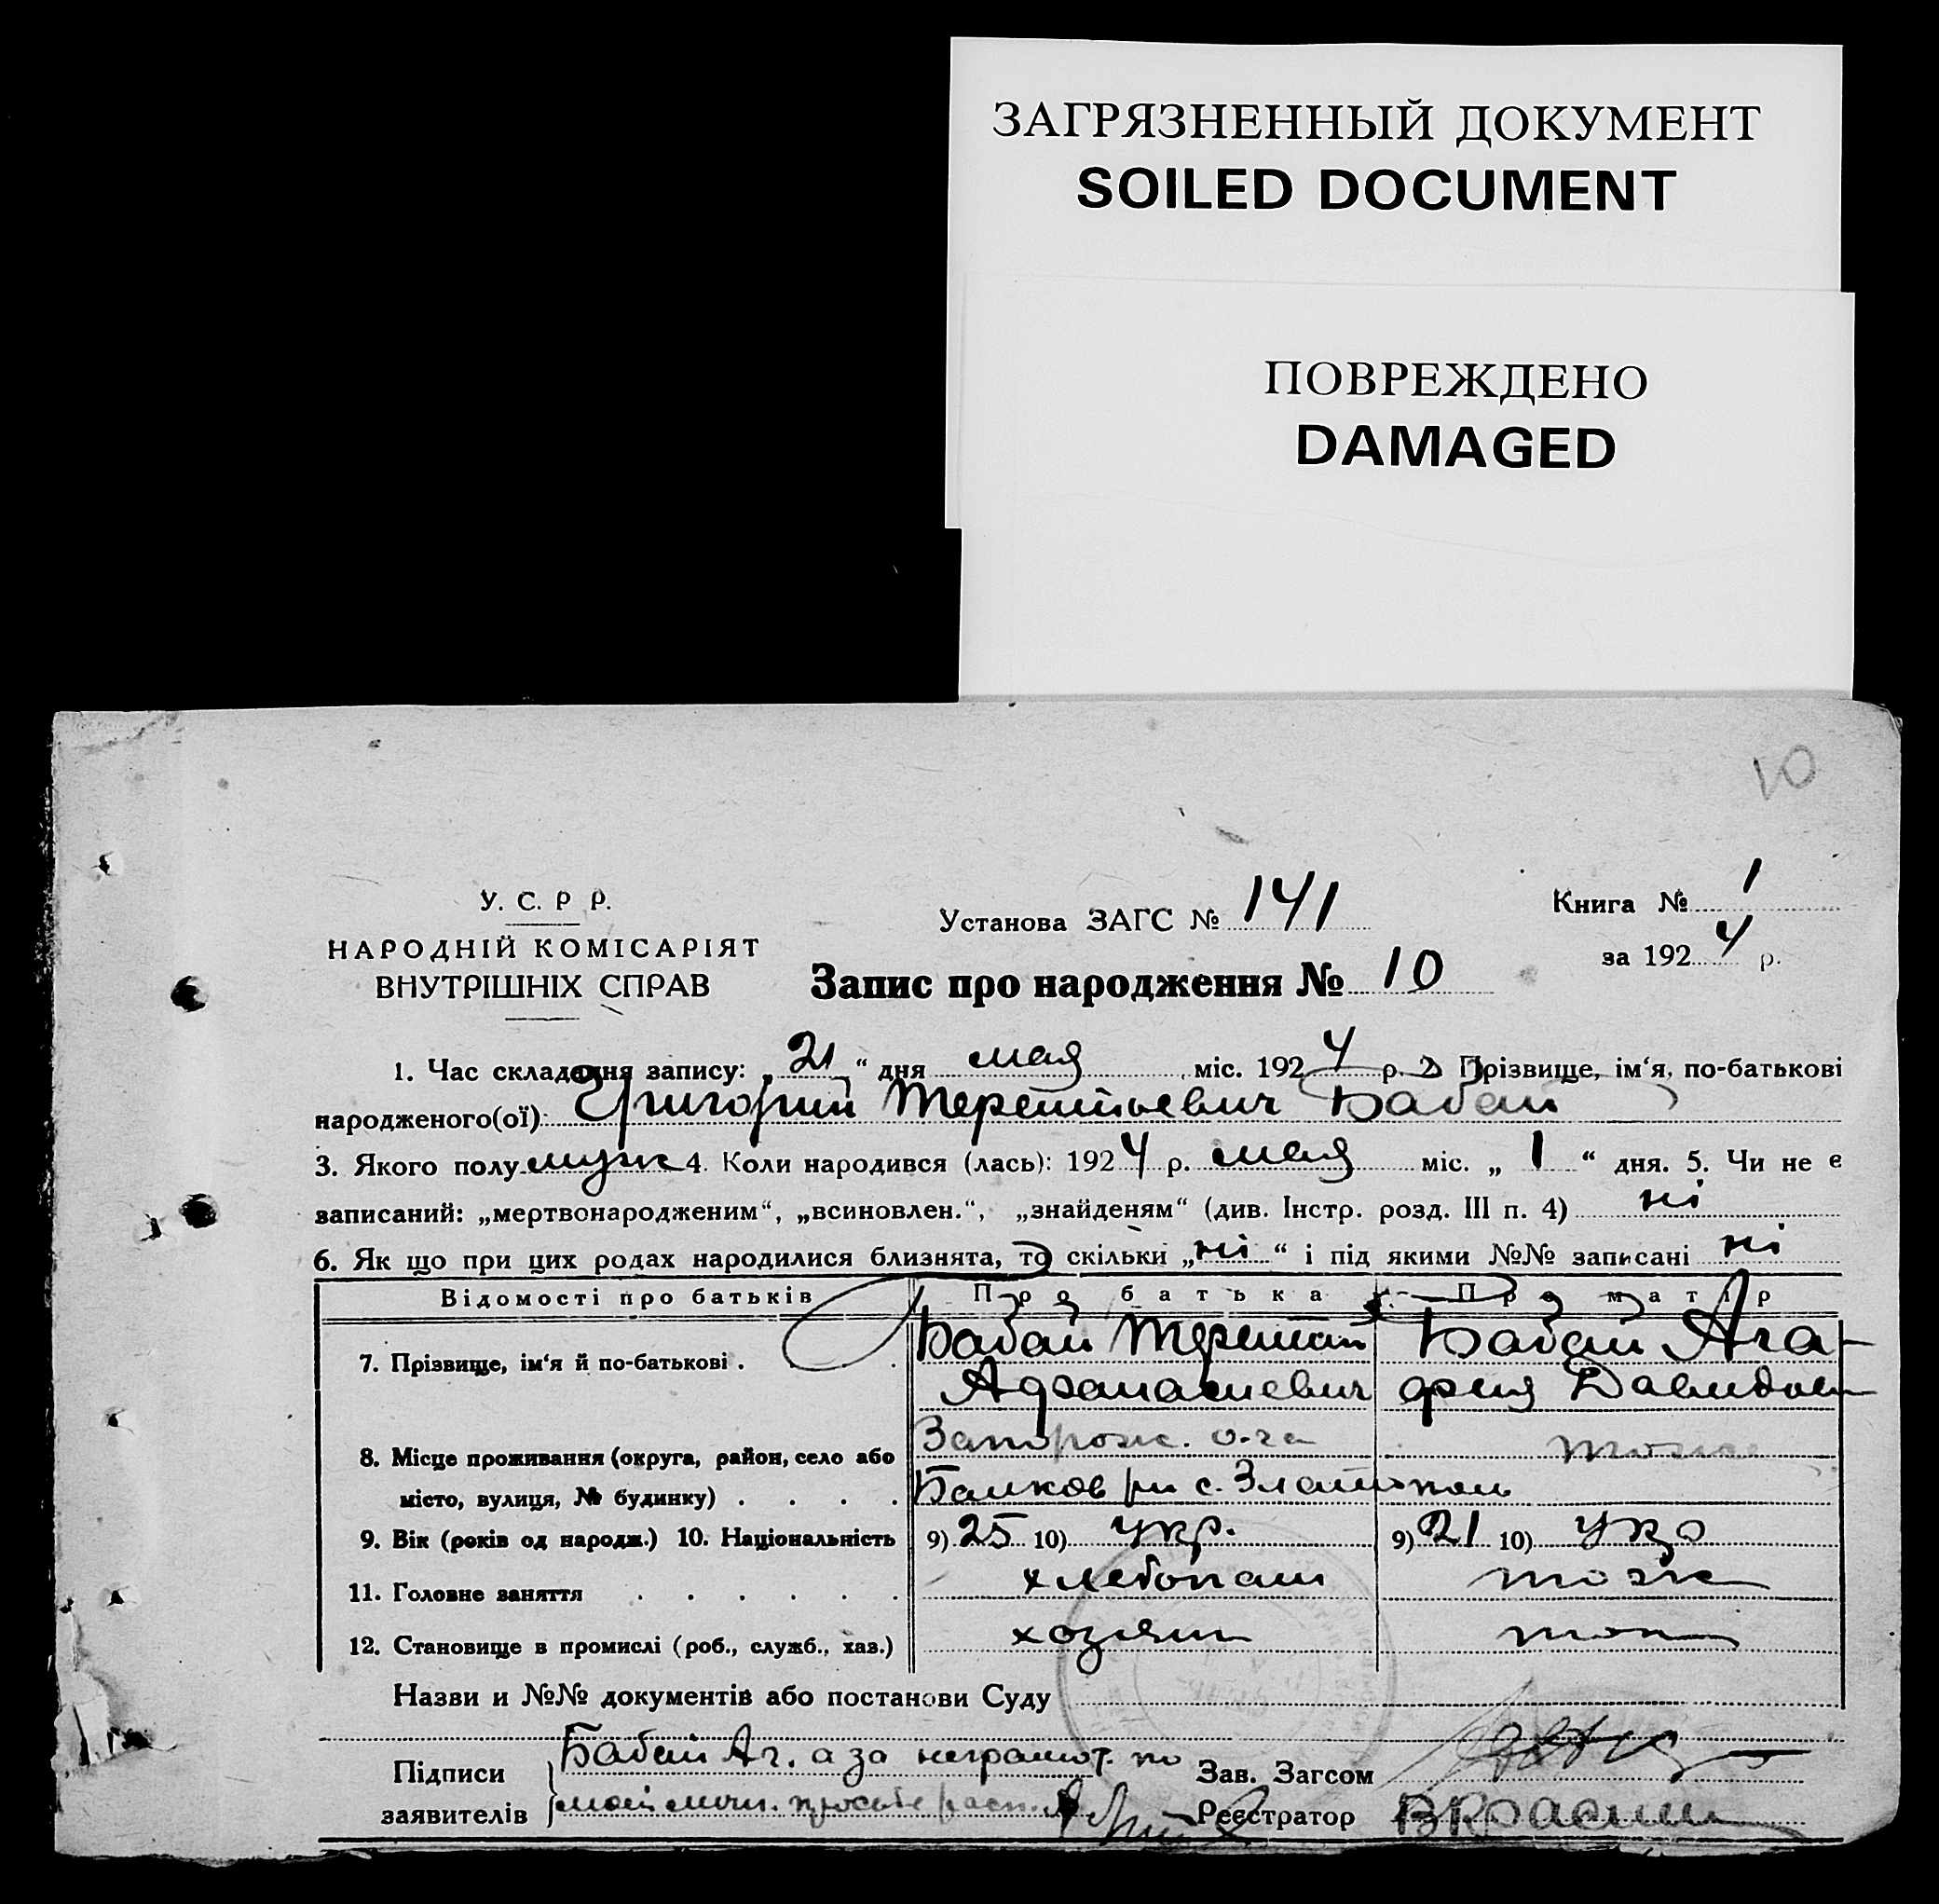 ЗАГРЯЗНЕННЫЙ ДОКУМЕНТ
SOILED DOCUMENT
ПОВРЕЖДЕНО
DAMAGED
10
У. С. Р Р.
НАРОДНІЙ КОМІСАРІЯТ
ВНУТРІШНІХ СПРАВ
Установа ЗАГС № 141
Книга № 1
за 1924 р.
Запис про народження № 10
1. Час складання запису: „21“ дня мая міс. 1924 р. 2. Прізвище, ім‘я, по-батькові
народженого(ої): Григорий Терентьевич Бабай
3. Якого полу муж 4. Коли народився (лась): 1924 р. мая міс. „1“ дня. 5. Чи не є
записаний: „мертвонародженим“, „всиновлен.“, „знайденям“ (див. Інстр. розд. III п. 4) ні
6. Як що при цих родах народилися близнята, то скільки „ні“ і під якими №№ записані ні
Відомості про батьків Про батька Про матір
7. Прізвище, ім‘я й по-батькові . Бабай Терентий Бабай Ага-
Афанасиевич фия Давидов
8. Місце проживання (округа, район, село або Запорож. о-га тоже
місто, вулиця, № будинку) . . . . Балков рн с. Златополь
9. Вік (років од народж.) 10. Національність 9) 25 10) укр. 9) 21 10) укр
11. Головне заняття . . . . . . хлебопаш тоже
12. Становище в промислі (роб., служб., хаз.) хозяин
Назви и №№ документів або постанови Суду
Підписи Бабай Аг. а за неграмот. по Зав. Загсом
заявителів просьбе Реєстратор